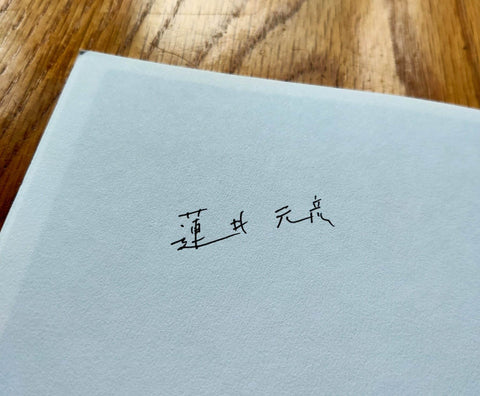 蓮井 元彦